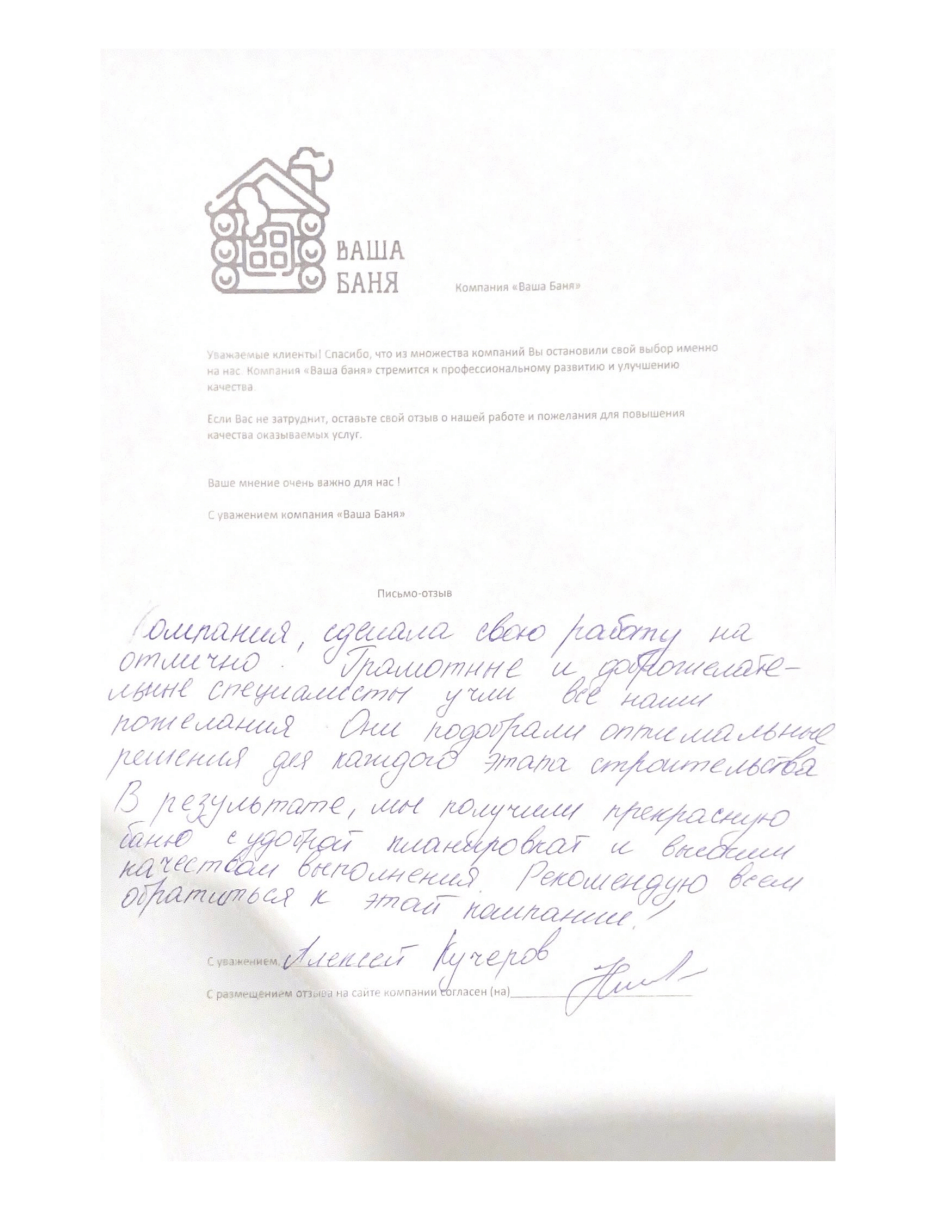 ВАША
БАНЯ
Компания «Ваша Баня»
Уважаемые клиенты! Спасибо, что из множества компаний Вы остановили свой выбор именно
на нас. Компания «Ваша баня» стремится к профессиональному развитию и улучшению
качества.
Если Вас не затруднит, оставьте свой отзыв о нашей работе и пожелания для повышения
качества оказываемых услуг.
Ваше мнение очень важно для нас !
С уважением компания «Ваша Баня»
Письмо-отзыв
Компания, сделала свою работу на
отлично. Грамотные и доброжелате-
льные специалисты учли все наши
пожелания Они подобрали оптимальные
решения для каждого этапа строительства
В результате, мы получили прекрасную
баню с удобной планировкой и высоким
качеством выполнения. Рекомендую всем
обратиться к этой компании!
С уважением, Алексей Кучеров
С размещением отзыва на сайте компании согласен (на)